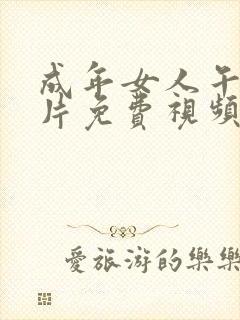 成年女人午
片免費視頻
愛旅游的樂樂